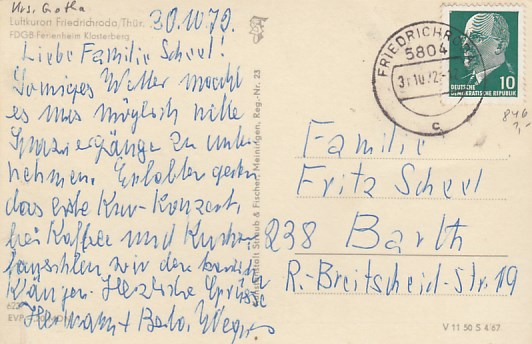 Krs. Gotha
Luftkurort Friedrichroda/Thür.
FDGB-Ferienheim Klosterberg
30.10.72.
Liebe Familie Scheel!
Sonniges Wetter macht
es uns möglich viele
Spaziergänge zu unter-
nehmen. Erlebten gestern
das erste Kur-Konzert,
bei Kaffee und Kuchen
lauschten wir den
Klängen. Herzliche Grüße
Hermann + Berta
FRIEDRICHRODA
5804
c
DEUTSCHE
DEMOKRATISCHE REPUBLIK
10
846
Familie
Fritz Scheel
238 Barth
R.-Breitscheid-Str. 19
Straub & Fischer Meiningen, Reg.-Nr. 23
V 11 50 S 4/67